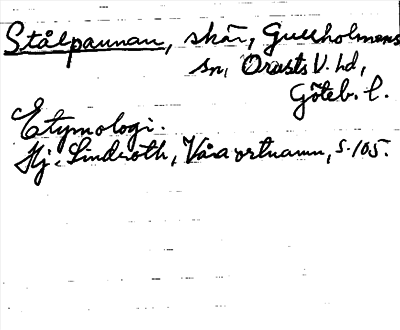 Stålpannan, skär, Gullholmens
sn, Orusts V. hd,
Göteb. l.
Etymologi.
Hj. Lindroth, Våra ortnamn, s. 105.